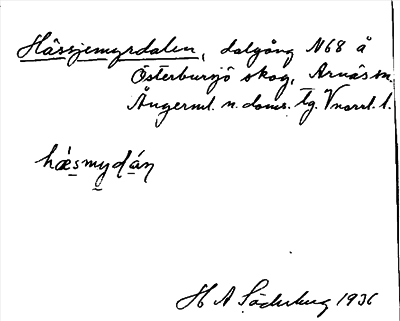 Hässjemyrdalen, dalgång N68 å
Österbursjö skog, Arnäs sn.
Ångerml. n. doms. tg. Vnorrl. l.
hǽsmydán
H A Söderberg 1936